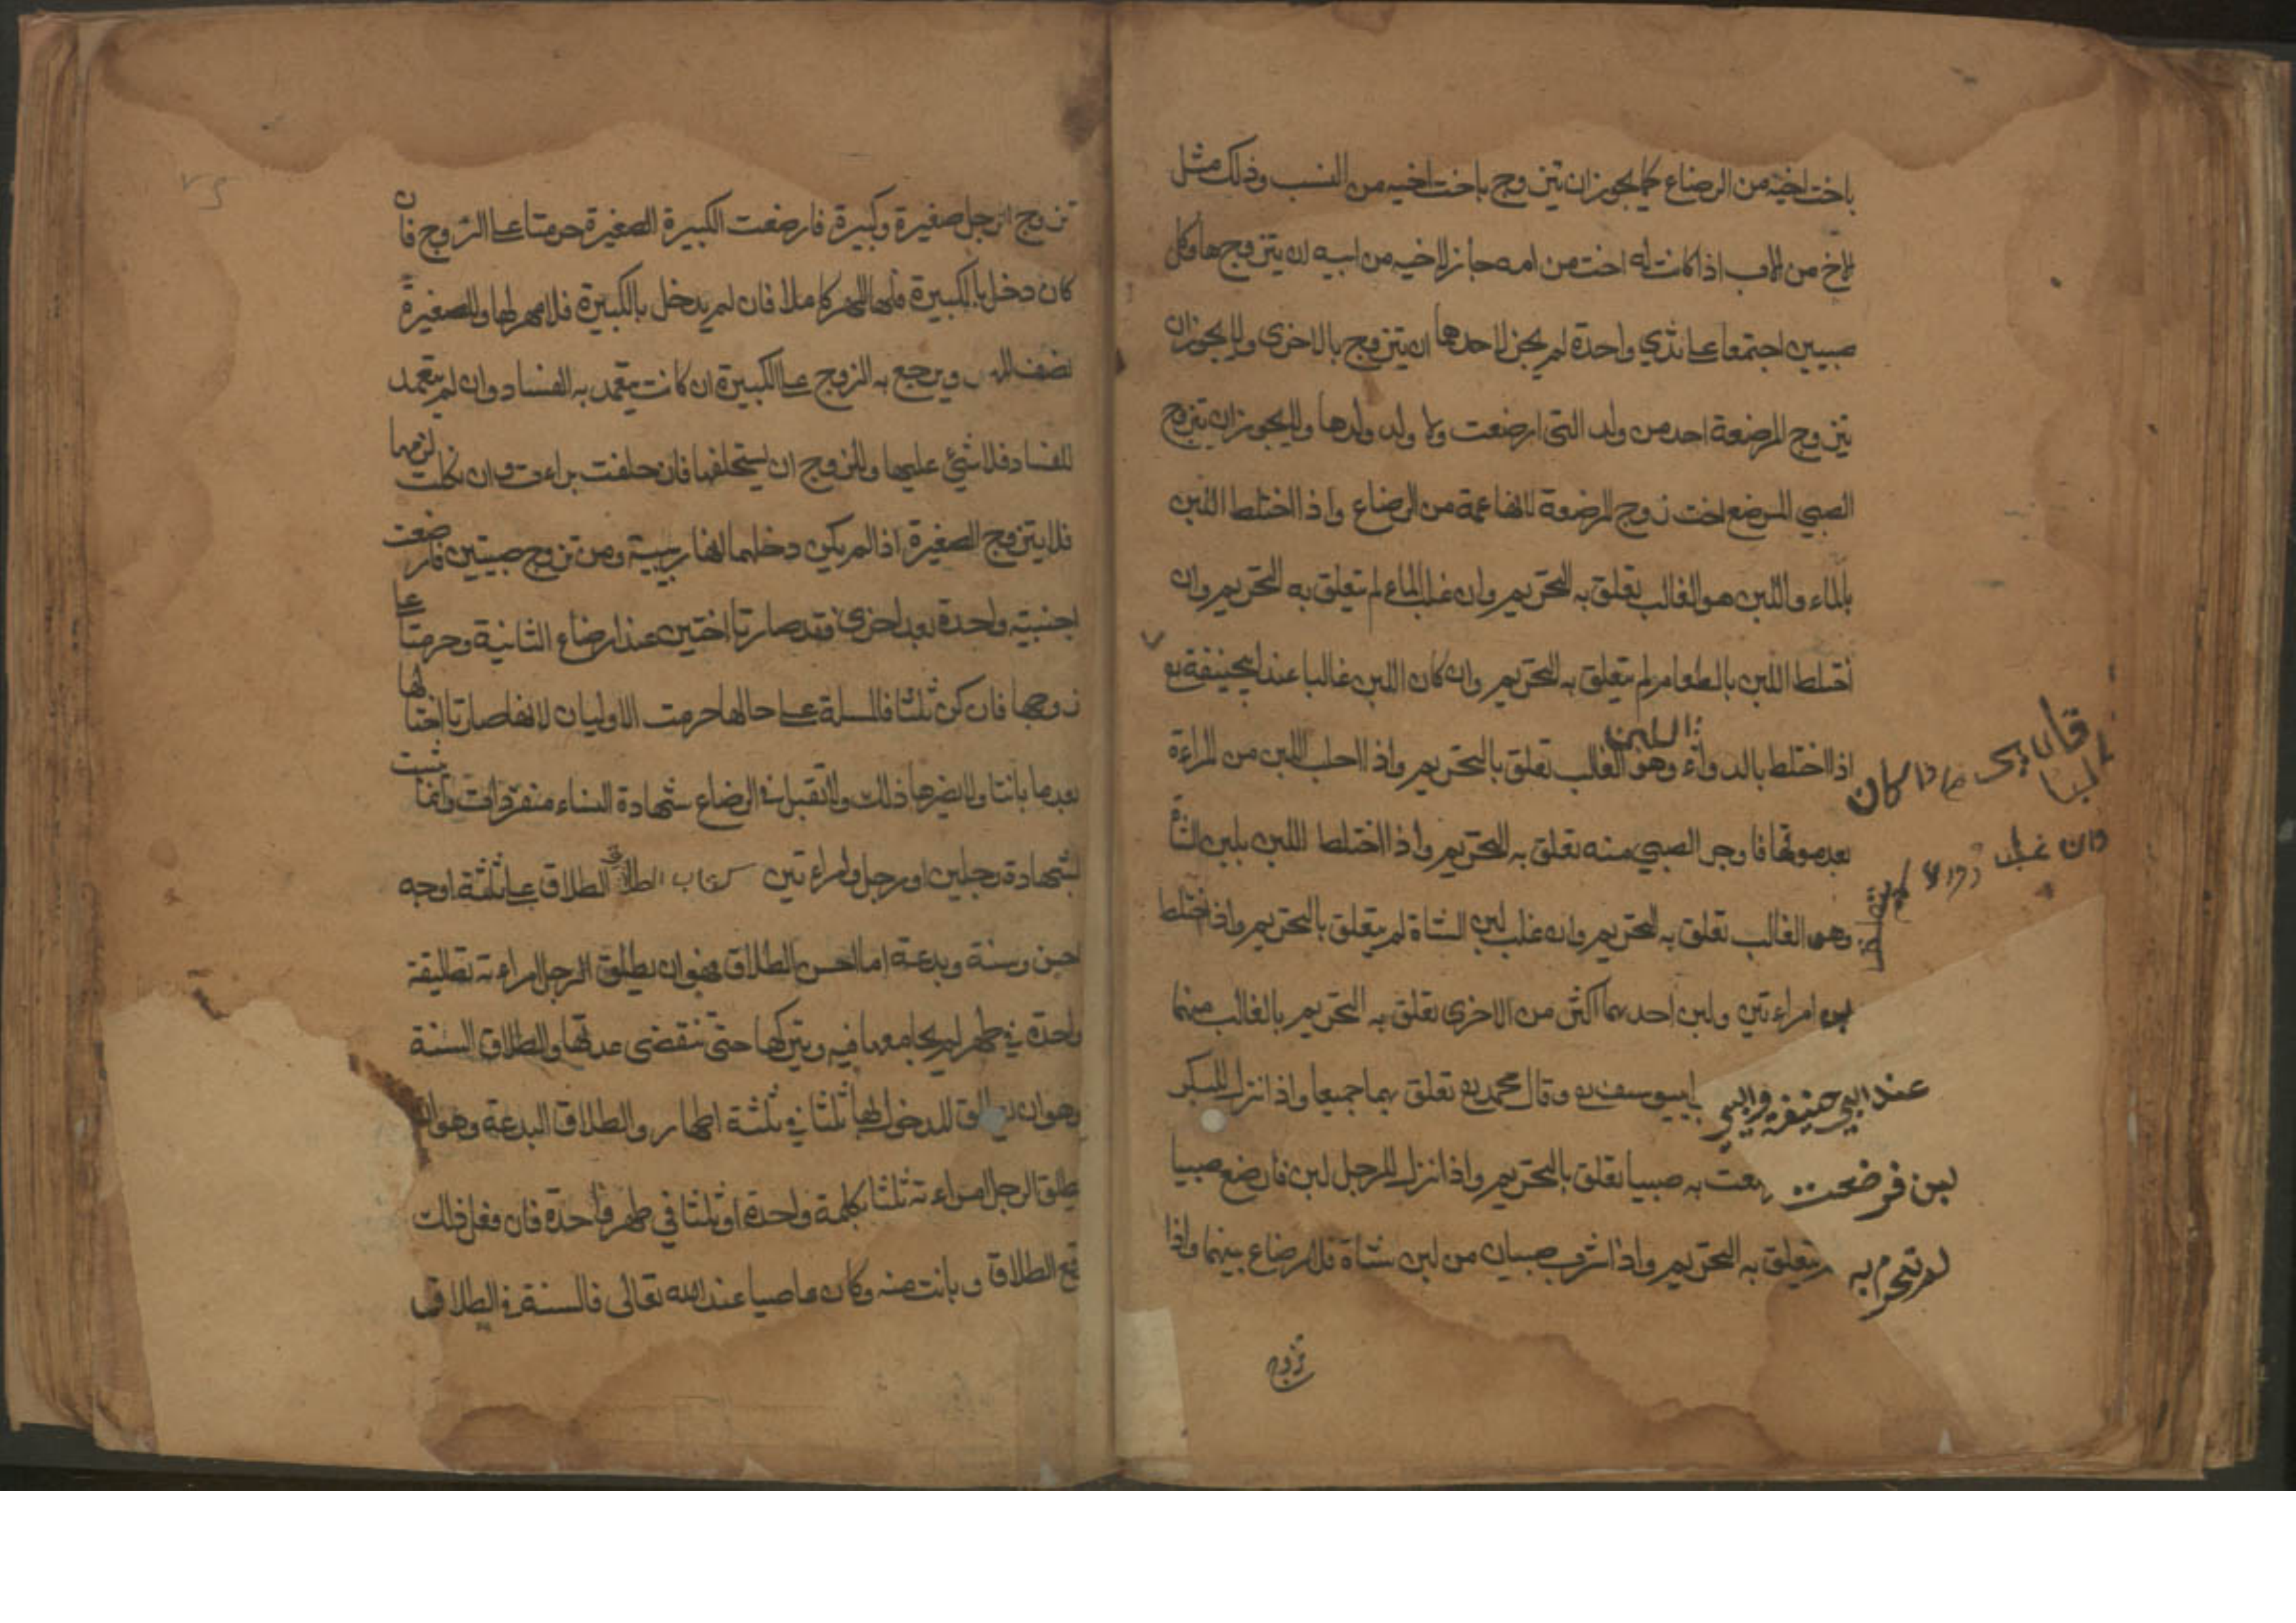 باخت اخيه من الرضاع كما يجوز ان يتزوج باخت اخيه من النسب وذلك مثل
الاخ من الاب اذا كانت له اخت من امه جاز لاخيه من ابيه ان يتزوجها وكل
صبيين اجتمعا على ثدي واحدة لم يجز لاحدهما ان يتزوج بالاخرى ولا يجوز ان
يتزوج المرضعة احد من ولد التى ارضعت ولا ولد ولدها ولا يجوز ان يتزوج
الصبي المرضع اخت زوج المرضعة لانها عمة من الرضاع واذا اختلط اللبن
بالماء واللبن هو الغالب تعلق به التحريم وان غلب الماء لم يتعلق به التحريم وان
اختلط اللبن بالطعام لم يتعلق به التحريم وان كان اللبن غالبا عند ابيحنيفة
اللبن
اذا اختلط بالدواء وهو الغالب تعلق بالتحريم واذا احلب اللبن من المراءة
بعد موتها فاوجر الصبي منه تعلق به التحريم واذا اختلط اللبن بلبن الشاة
وهو الغالب تعلق به التحريم وان غلب لبن الشاة لم يتعلق بالتحريم واذا اختلط
لبن امراءتين ولبن احدهما اكثر من الاخرى تعلق به التحريم بالغالب منهما
عند ابي حنيفة وابي ابيوسف وقال محمد تعلق بهما جميعا واذا نزل للبكر
لبن فرضعت به صبيا تعلق بالتحريم واذا نزل للرجل لبن فارضع صبيا
لم تحرم به يتعلق به التحريم واذا شرب صبيان من لبن شاة فلا رضاع بينهما واذا
تزوج
وان غلب
تزوج الرجل صغيرة وكبيرة فارضعت الكبيرة الصغيرة حرمتا على الزوج فان
كان دخل بالكبيرة فلها المهر كاملا فان لم يدخل بالكبيرة فلا مهر لها وللصغيرة
نصف المهر ويرجع به الزوج على الكبيرة ان كانت يتعمد به الفساد وان لم يتعمد
الفساد فلا شئ عليها وللزوج ان يستحلفها فان حلفت براءت وان نكلت لزمها
فلا يتزوج الصغيرة اذا لم يكن دخلهما لانها ربيبة ومن تزوج صبيتين فارضعت
اجنبية واحدة بعد اخرى فقد صارتا اختين عند ارضاع الثانية وحرمتا على
زوجها فان كن ثلثا فالمسلة على حالها حرمت الاوليان لانهما صارتا اختا لها
بعد ما بانتا ولا يضرها ذلك ولا تقبل في الرضاع شهادة النساء منفردات وانما يثبت
بشهادة رجلين او رجل وامراءتين كتاب الطلاق الطلاق على ثلثة اوجه
احسن وسنة وبدعة اما احسن الطلاق فهو ان يطلق الرجل امراءته تطليقة
واحدة في طهر لم يجامعها فيه ويتركها حتى تنقضى عدتها والطلاق السنة
وهو ان يطلق المدخول بها ثلثا في ثلثة اطهار والطلاق البدعة وهو ان
يطلق الرجل امراءته ثلثا بكلمة واحدة او ثلثا في طهر واحدة فان فعل ذلك
وقع الطلاق وبانت منه وكان عاصيا عند الله تعالى فالسنة في الطلاق